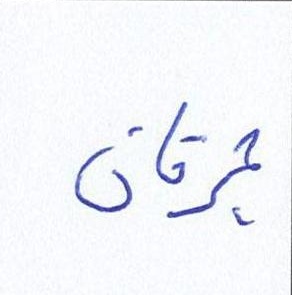 جرقان